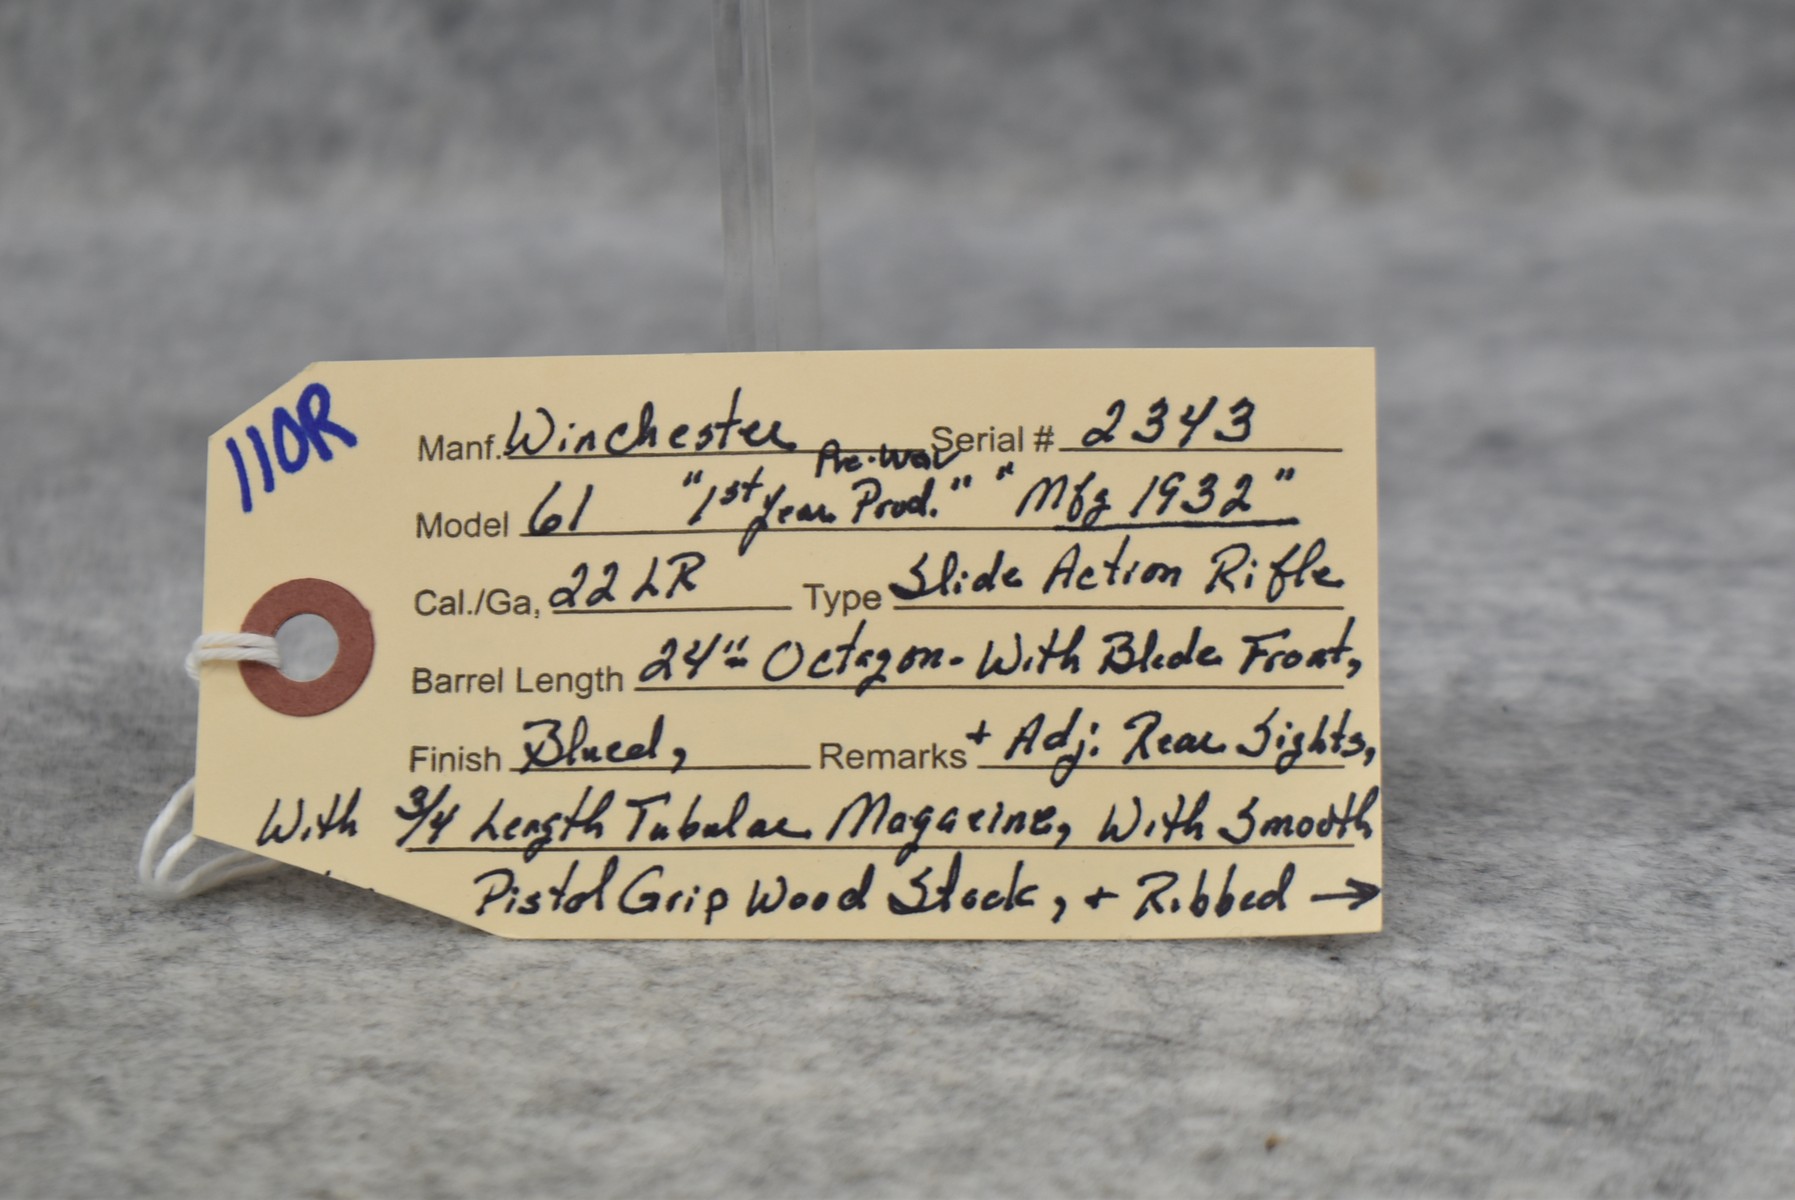 110R
Manf. Winchester Serial # 2343
Pre-War
Model 61 "1st Year Prod." "Mfg 1932"
Cal./Ga, 22 LR Type Slide Action Rifle
Barrel Length 24" Octagon - With Blade Front,
Finish Blued, Remarks + Adj. Rear Sights,
With 3/4 Length Tubular Magazine, With Smooth
Pistol Grip Wood Stock, + Ribbed →